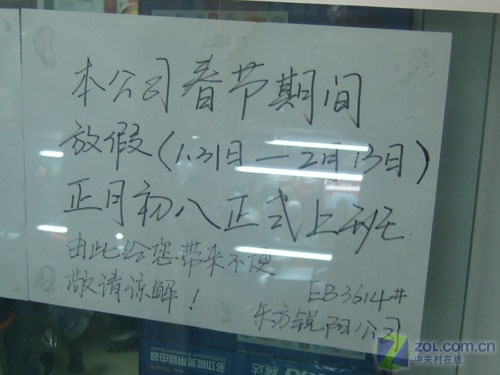 本公司春节期间
放假(1.31日—2月13日)
正月初八正式上班
由此给您带来不便
敬请谅解!
EB3614#
东方锐阳公司
多功能宽带路由器
腾达
zol.com.cn
中关村在线